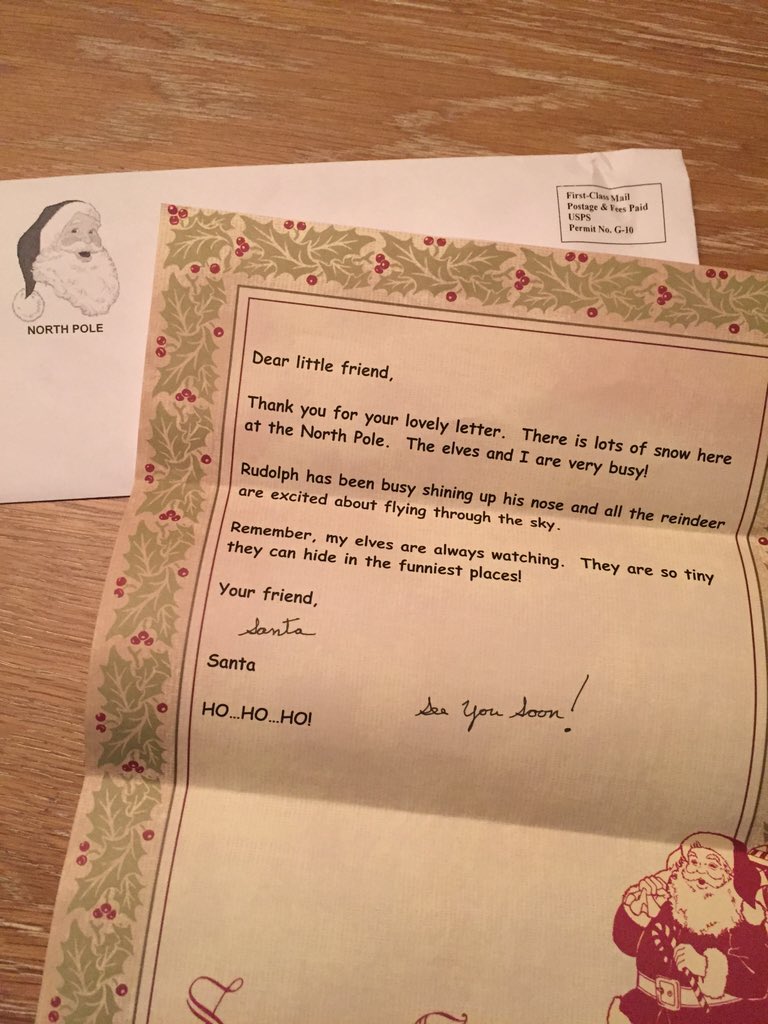 First-Class Mail
Postage & Fees Paid
USPS
Permit No. G-10
NORTH POLE
Dear little friend,
Thank you for your lovely letter. There is lots of snow here
at the North Pole. The elves and I are very busy!
Rudolph has been busy shining up his nose and all the reindeer
are excited about flying through the sky.
Remember, my elves are always watching. They are so tiny
they can hide in the funniest places!
Your friend,
Santa
Santa
HO...HO...HO!
See You Soon!